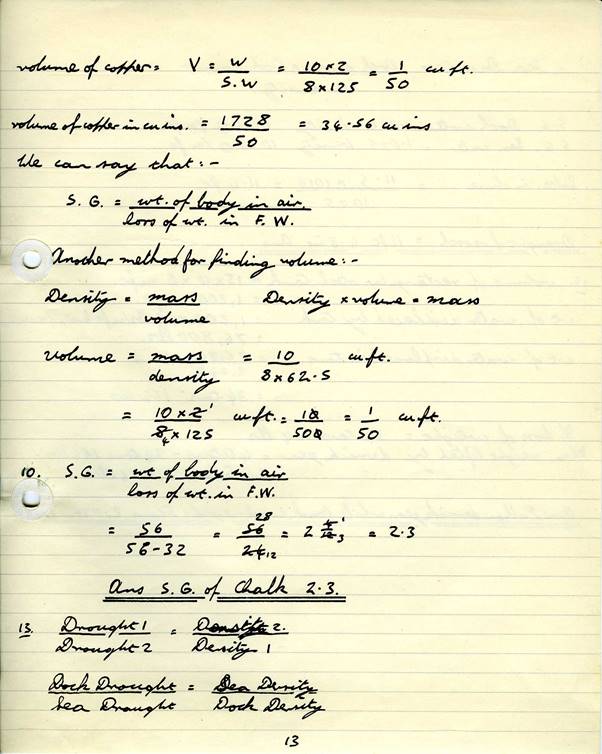 volume of copper = V = W/S.W = 10 x 2/8 x 125 = 1/50 cu ft.
volume of copper in cu ins. = 1728/50 = 34.56 cu ins
We can say that :-
S. G. = wt. of body in air./loss of wt. in F.W.
Another method for finding volume :-
Density = mass/volume Density x volume = mass
Volume = mass/density = 10/8 x 62.5 cu ft.
= 10 x 2 1/8 4 x 125 cu ft. = 10/500 = 1/50 cu ft.
10. S.G. = wt of body in air/loss of wt. in F.W.
= 56/56 - 32 = 56 28/24 12 = 2 4 1/12 3 = 2.3
Ans S.G. of Chalk 2.3.
13. Drought 1/Drought 2 = Density 2./Density 1
Dock Drought/Sea Drought = Sea Density/Dock Density
13